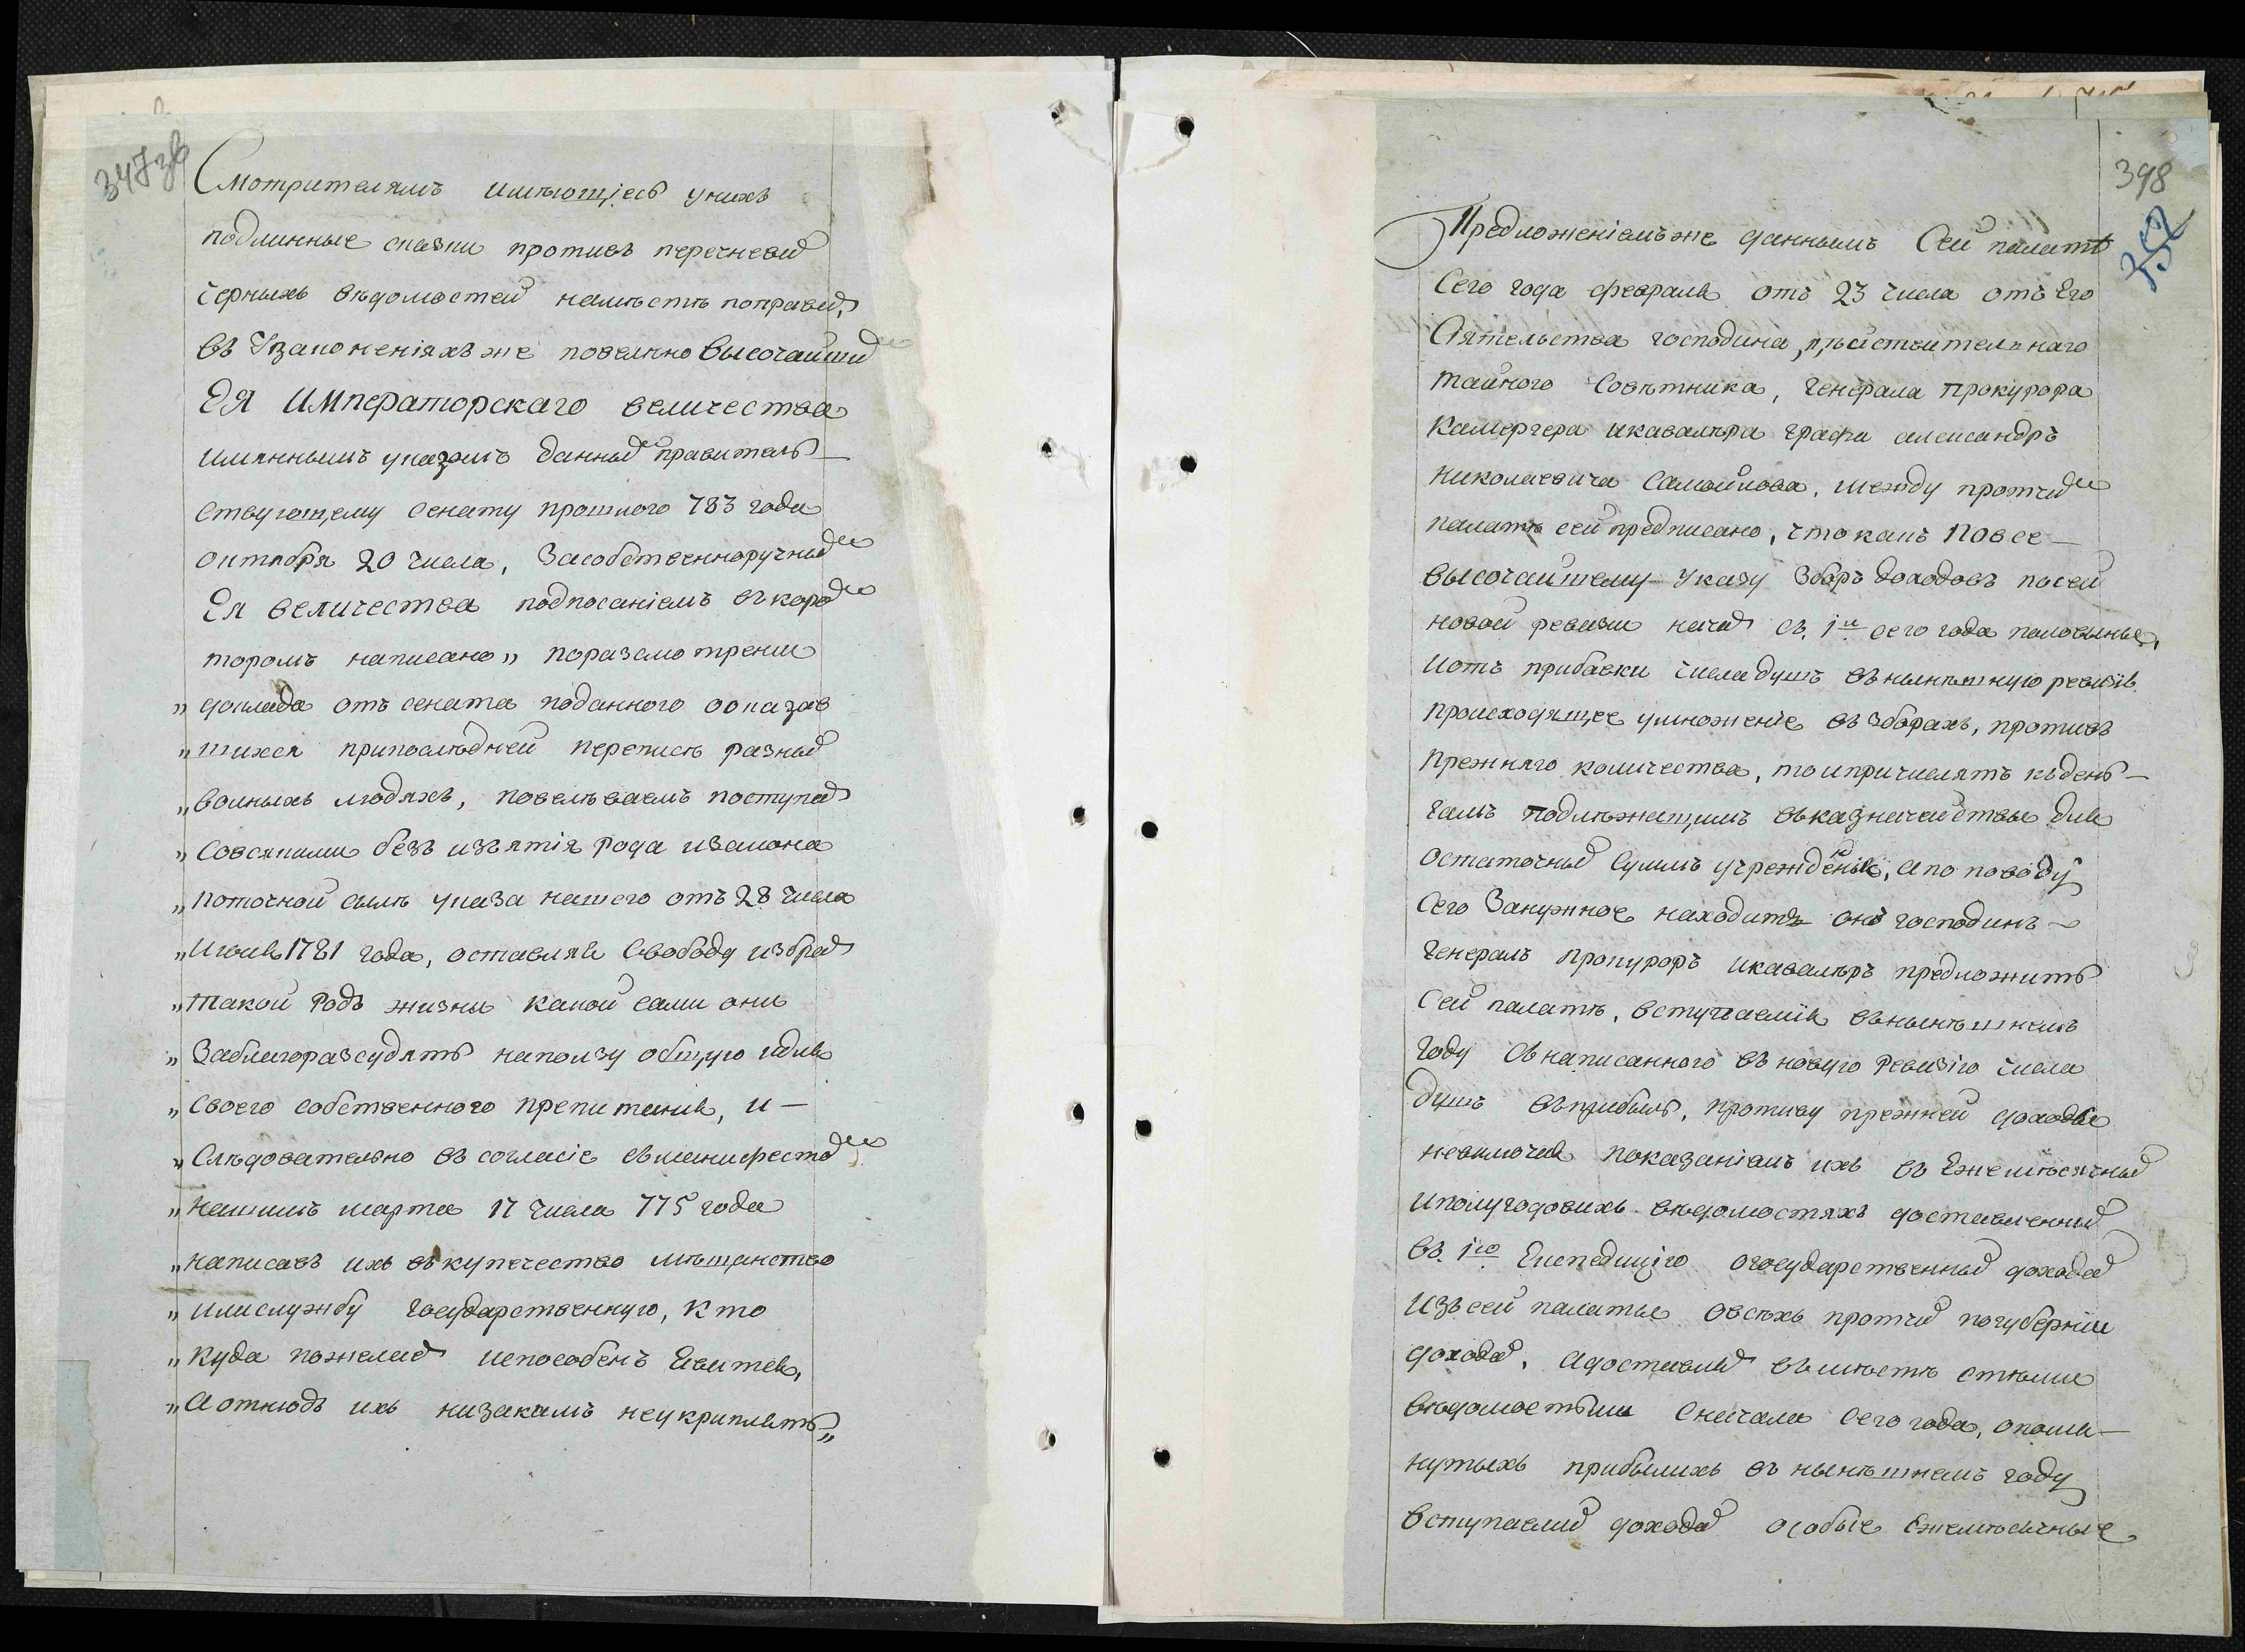 347 зв
Смотрителямъ имѣющіесь унихъ
подлинные сказки противъ перечневы
черныхъ вѣдомостей намѣстѣ поправи,
въ Узаконеніяхъ же повелѣно высочайши
Ея Императорскаго величества
имяннымъ указомъ данны правитель—
ствующему сенату прошлого 783 года
октября 20 числа, Засобственноручны
Ея величества подписаніемъ въкоро
торомъ написано„ поразсмотрении
„ доклада отъ сената поданного оказав
„ шихся припослѣдней переписѣ разны
„ вольныхъ людяхъ, повелѣваемъ поступа
„ Совсякими безъ изъятія рода изакона
„ поточной силѣ указа нашего отъ 28 числа
„ Июня 1781 года, оставляя Свободу избра
„ такой родъ жизни какой сами они
„ Заблагоразсудятъ наползу общую идля
„ своего собственного препитания, и —
„ Слѣдовательно въ согласіе съманифесто
„ нашимъ марта 17 числа 775 года
„ написавъ ихъ въкупечество мѣщанство
„ или службу государственную, кто
„ куда пожелае испособенъ Явится,
„ А отнюдъ ихъ низакемъ неукриплять„
398
352
Предложеніемъже даннымъ Сей палатѣ
Сего года февраля отъ 23 числа отъ Его
Сіятельства господина дѣйствительнаго
тайного Совѣтника, Генерала прокурора
Камергера икавалѣра графа александръ
николаевича Самойлова, между протчи
палатѣ сей предписано, что какъ повсе—
высочайшему Указу Зборъ доходовъ посей
новой ревизии нача съ 1й сего года половины,
иотъ прибавки числа душъ въ нынѣшную ревизію
происходящее умножение въ зборахъ, противъ
прежняго количества, то ипричислять къдень—
гамъ подлѣжащимъ въказначействы для
остаточны Суммъ учрежденны, апо поводу
Сего Занужное находитъ онъ господинъ
генералъ прокуроръ икавалѣръ предложить
Сей палатѣ, вступаемія въ нынѣшнемъ
году Снаписанного въ новую ревизію числа
душъ въприбыль, противу прежней доходы
невключая показаніемъ ихъ въ Ежемѣсячны
иполугодовихъ вѣдомостяхъ доставленны
въ 1ю Експедицію огосударственны дохода
изъ сей палаты овсѣхъ протчи погубернии
дохода, адоставля въмѣстѣ стѣми
вѣдомостьми сначала Сего года, опомя—
нутыхъ прибылихъ въ нынѣшнемъ году
вступаеми дохода особые Ежемѣсячные